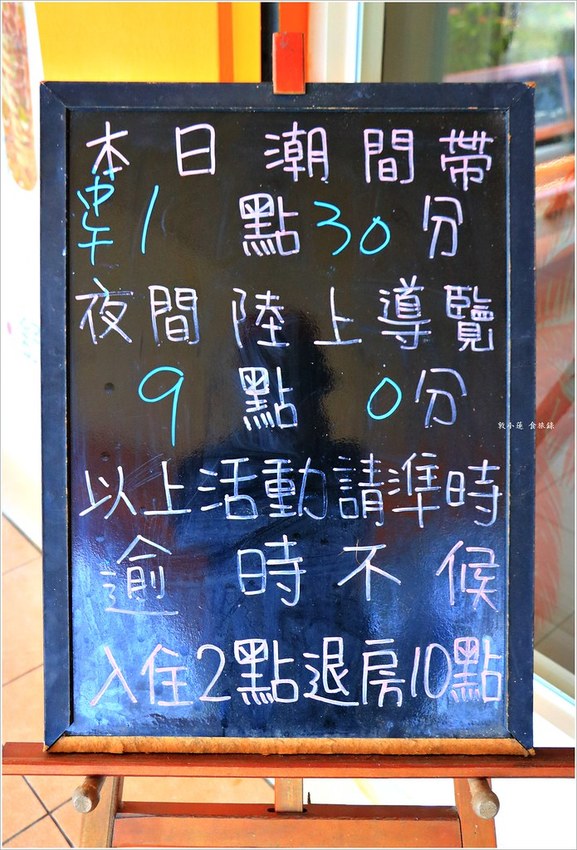 本日潮間帶
中午1點30分
夜間陸上導覽
9點0分
以上活動請準時
逾時不候
入住2點退房10點